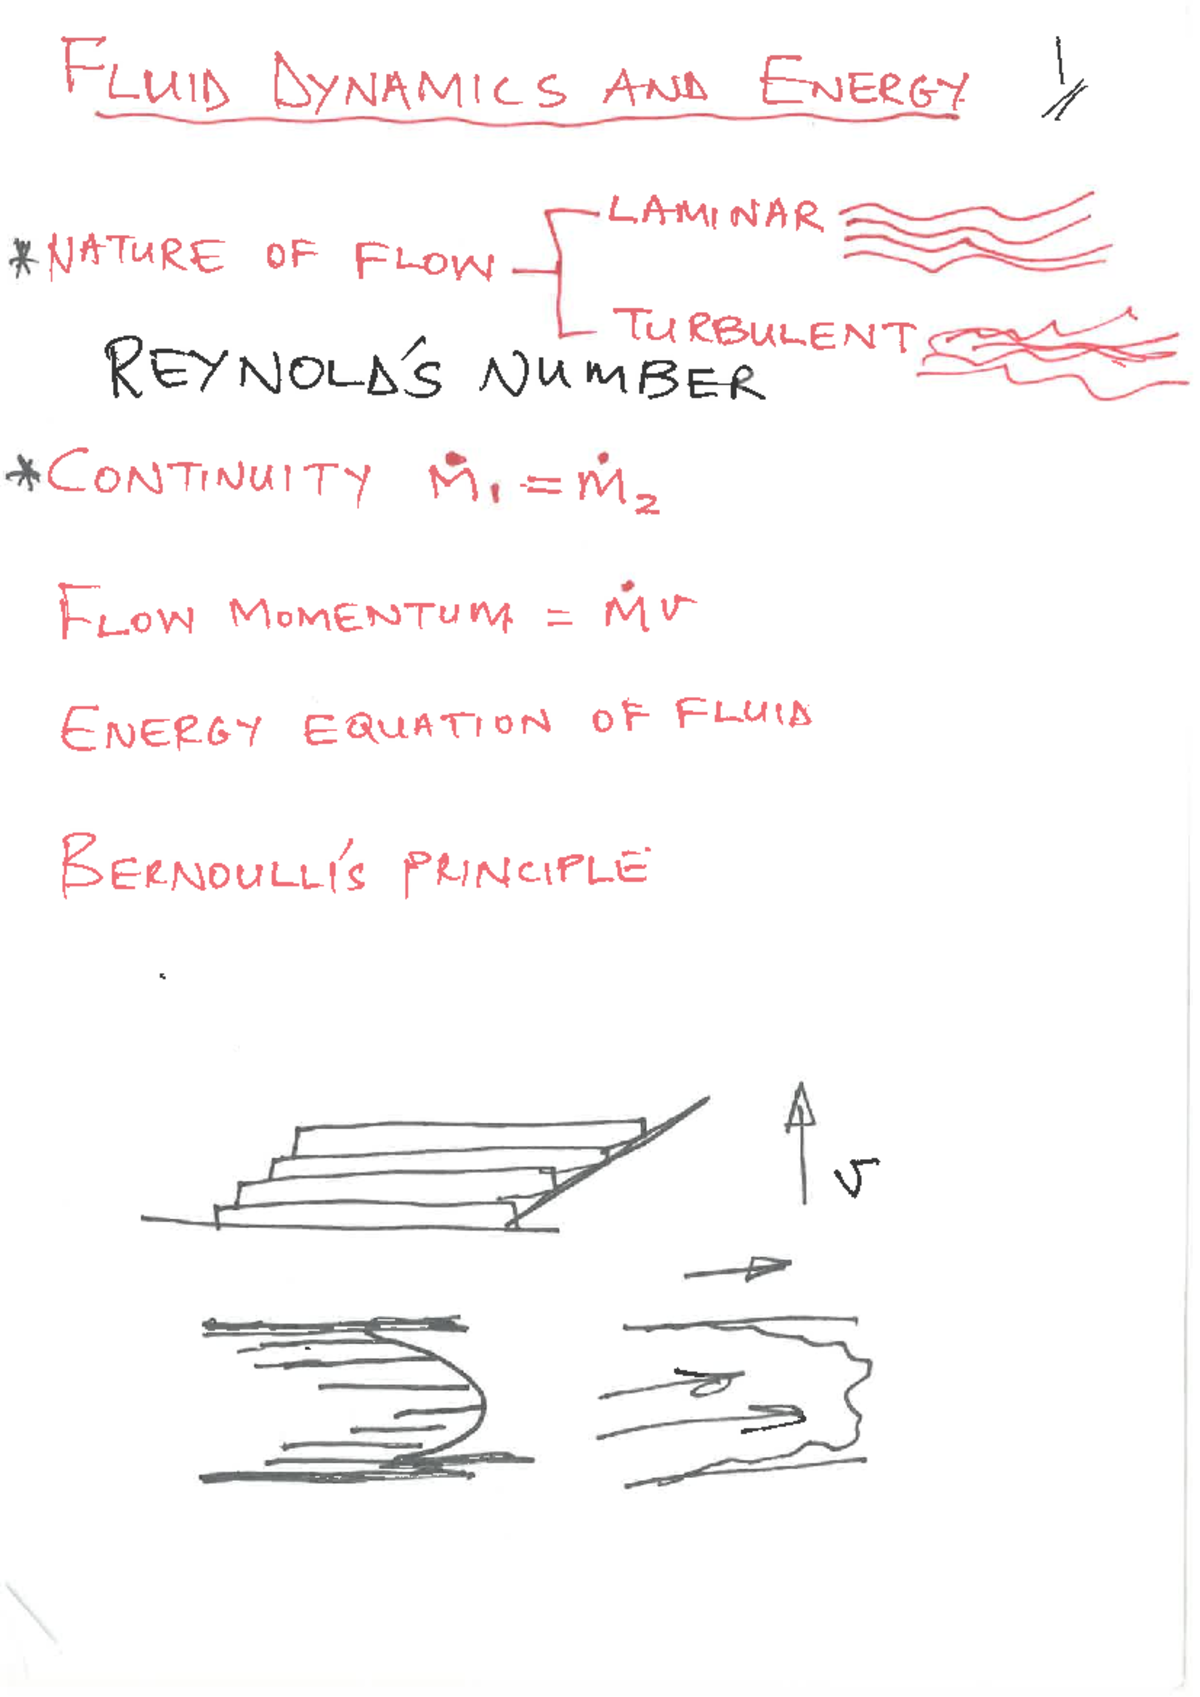 FLUID DYNAMICS AND ENERGY 1
LAMINAR
*NATURE OF FLOW
TURBULENT
REYNOLD'S NUMBER
*CONTINUITY Ṁ₁ = Ṁ₂
FLOW MOMENTUM = Ṁv
ENERGY EQUATION OF FLUID
BERNOULLI'S PRINCIPLE
v